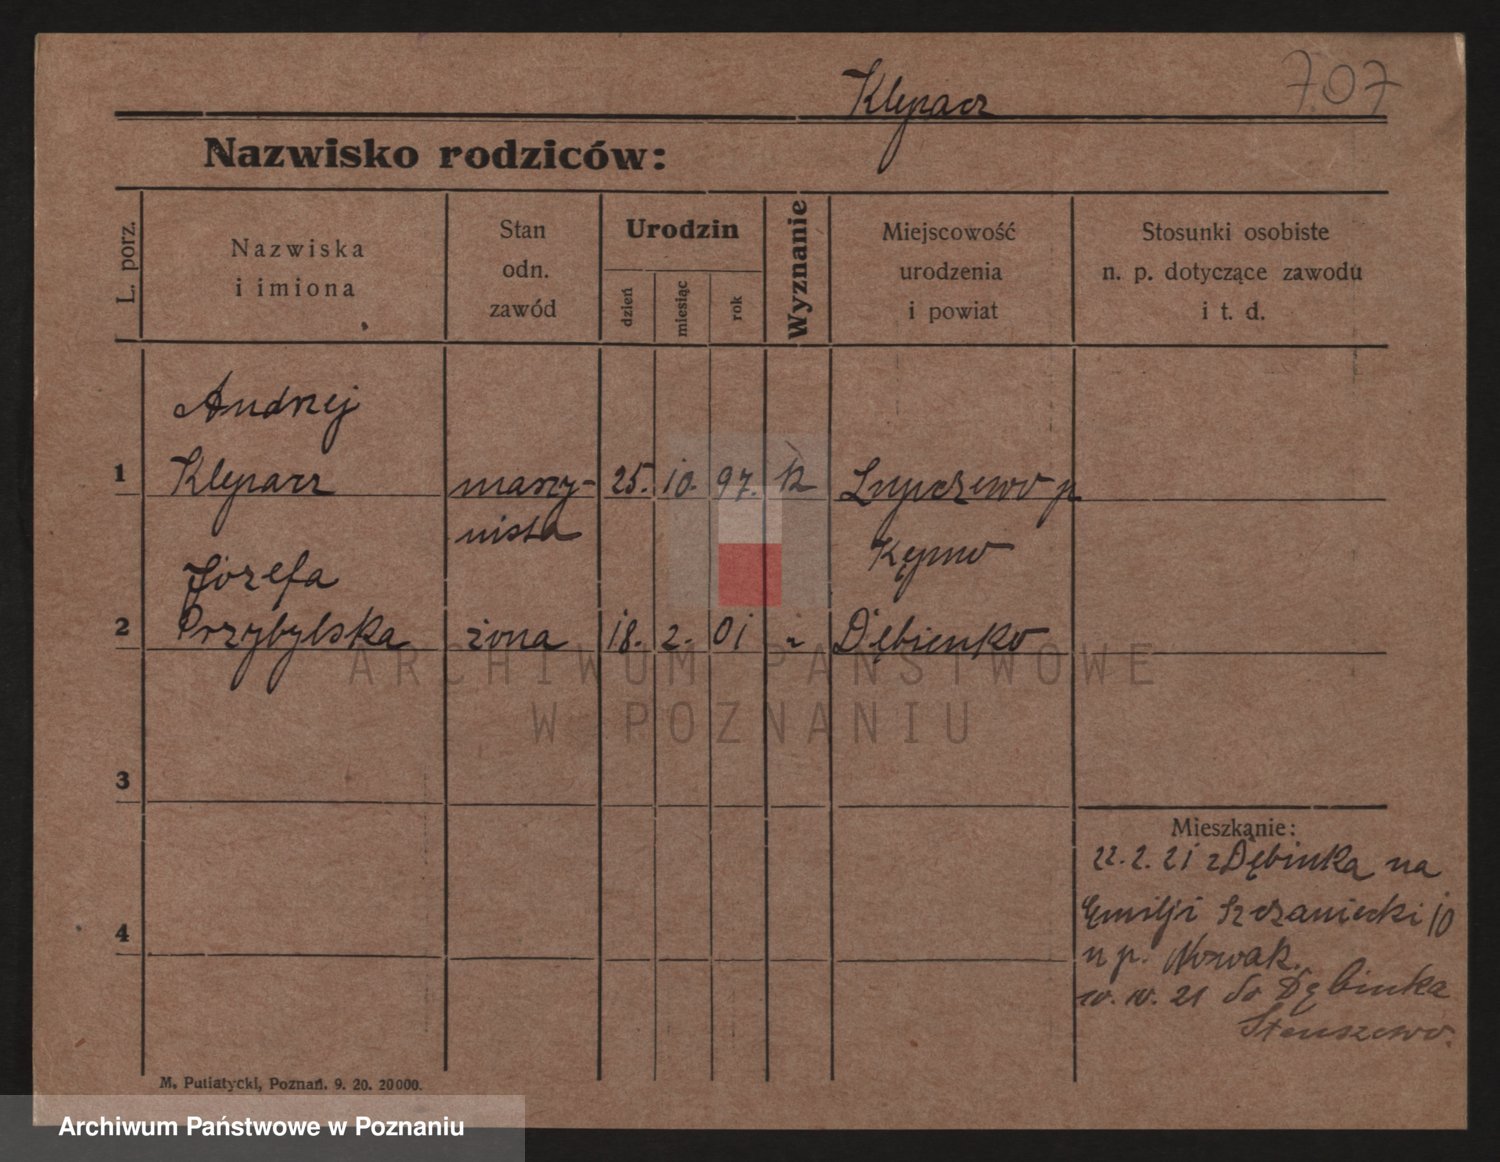 Klepacz
7.07
Nazwisko rodziców:
L. porz.
Nazwiska
i imiona
Stan
odn.
zawód
Urodzin
dzień
miesiąc
rok
Wyznanie
Miejscowość
urodzenia
i powiat
Stosunki osobiste
n. p. dotyczące zawodu
i t. d.
Andrzej
1 Klepacz maszy- 25. 10. 97. k p
nista Kępno
Józefa
2 Przybylska żona 18. 2. 01 Dębienko
ARCHIWUM PAŃSTWOWE
W POZNANIU
3
Mieszkanie:
22. 2. 21 z Dębinka na
Emilji Szczaniecki 10
u p. Nowak.
21 do Dębinka
Stenszewo.
4
M. Putiatycki, Poznań. 9. 20. 20000.
Archiwum Państwowe w Poznaniu